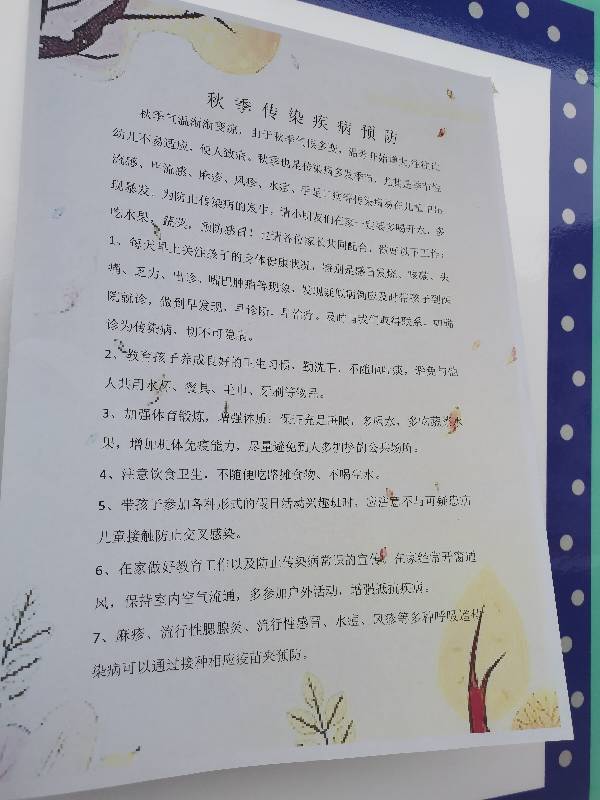 秋季传染疾病预防
秋季气温渐渐变凉，由于秋季气候多变，温差开始增大，往往
幼儿不易适应，使人致病。秋季也是传染病多发季节，尤其是季节性
流感、甲流感、麻疹、风疹、水痘、手足口病等传染病易在儿童中出
现暴发。为防止传染病的发生，请小朋友们在家一定要多喝开水，多
吃水果、蔬菜，预防感冒！还请各位家长共同配合，做好以下工作：
1、每天早上关注孩子的身体健康状况，特别是感冒发烧、咳嗽、头
痛、乏力、出诊、嘴巴肿痛等现象，发现疑似病例应及时带孩子到医
院就诊，做到早发现、早诊断、早治疗。及时与我们取得联系，如确
诊为传染病，切不可隐瞒。
2、教育孩子养成良好的卫生习惯，勤洗手，不随地吐痰，避免与他
人共用水杯、餐具、毛巾、牙刷等物品。
3、加强体育锻炼，增强体质；保证充足睡眠，多喝水，多吃蔬菜水
果，增加机体免疫能力，尽量避免到人多拥挤的公共场所。
4、注意饮食卫生，不随便吃路摊食物、不喝生水。
5、带孩子参加各种形式的假日活动兴趣班时，应注意不与可疑患病
儿童接触防止交叉感染。
6、在家做好教育工作以及防止传染病常识的宣传，在家经常开窗通
风，保持室内空气流通，多参加户外活动，增强抵抗疾病。
7、麻疹、流行性腮腺炎、流行性感冒、水痘、风疹等多种呼吸道传
染病可以通过接种相应疫苗来预防。